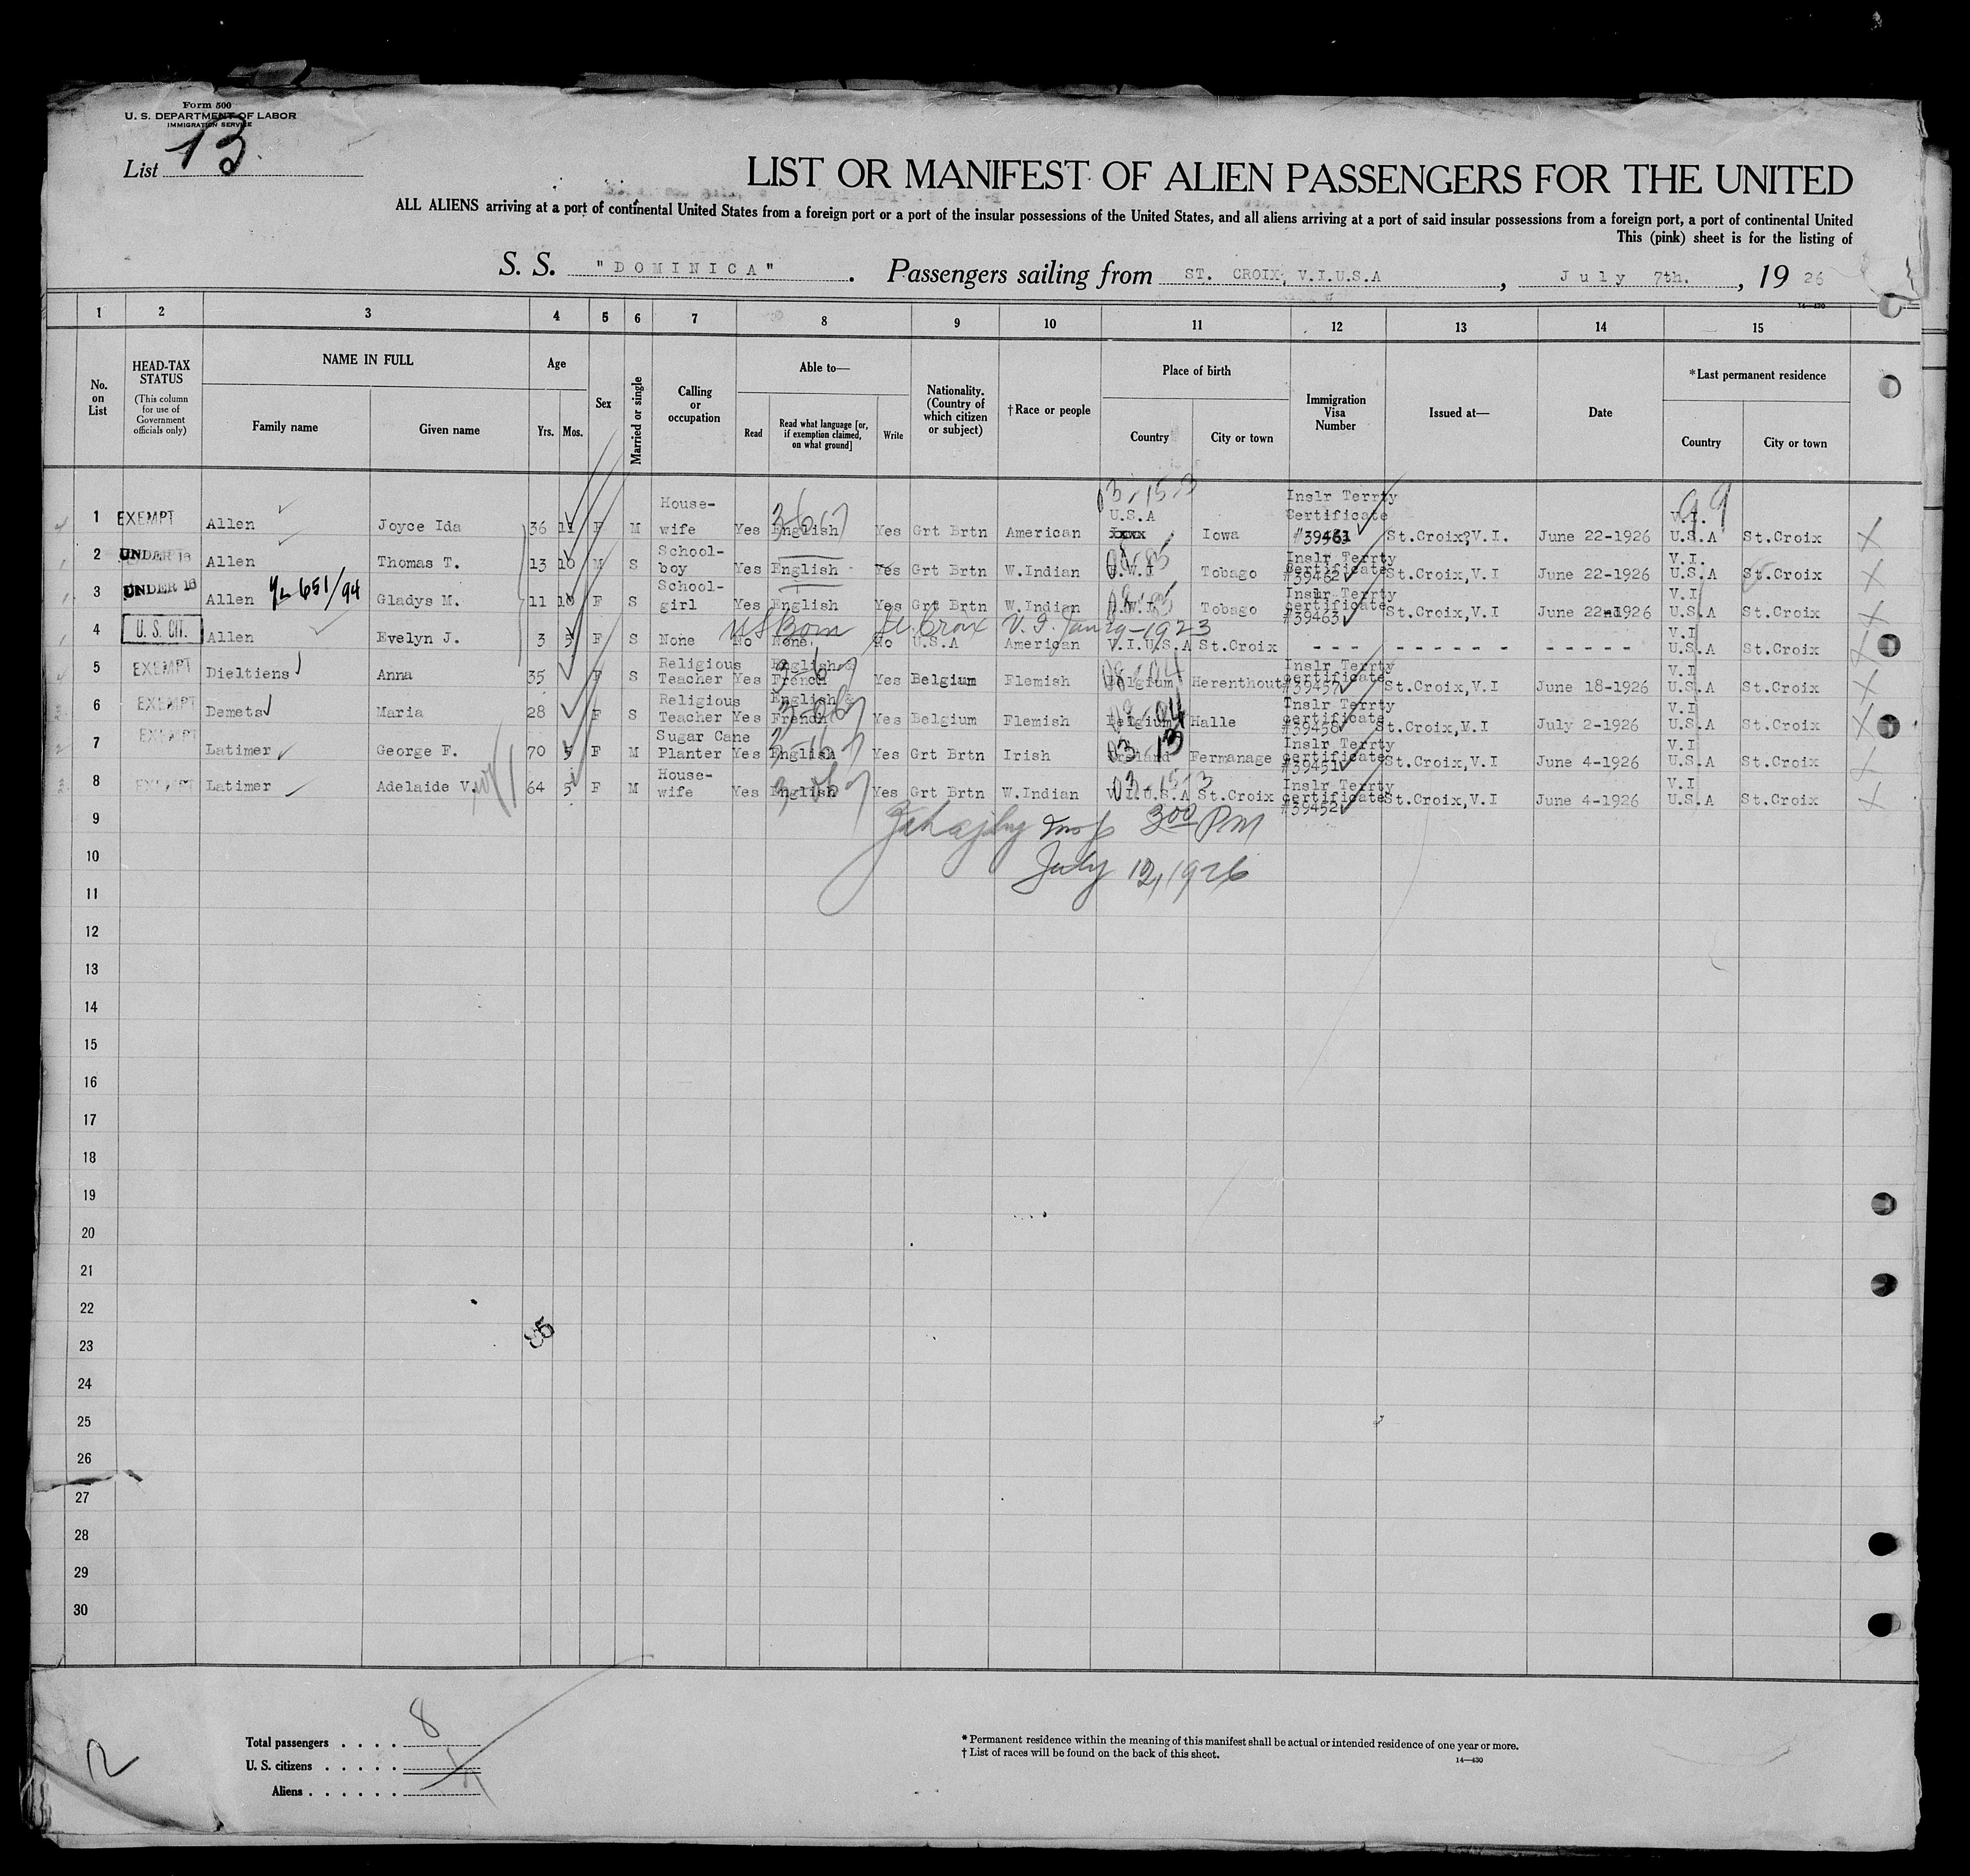 Form 500
U. S. DEPARTMENT OF LABOR
IMMIGRATION SERVICE
List 13
LIST OR MANIFEST OF ALIEN PASSENGERS FOR THE UNITED
ALL ALIENS arriving at a port of continental United States from a foreign port or a port of the insular possessions of the United States, and all aliens arriving at a port of said insular possessions from a foreign port, a port of continental United
This (pink) sheet is for the listing of
S. S. "DOMINICA". Passengers sailing from ST. CROIX, V.I.U.S.A, July 7th., 19 26
14—430
1 2 3 4 5 6 7 8 9 10 11 12 13 14 15
No. on List
HEAD-TAX STATUS (This column for use of Government officials only)
NAME IN FULL
Family name Given name
Age
Yrs. Mos.
Sex
Married or single
Calling or occupation
Able to—
Read Read what language [or, if exemption claimed, on what ground] Write
Nationality. (Country of which citizen or subject)
†Race or people
Place of birth
Country City or town
Immigration Visa Number
Issued at—
Date
*Last permanent residence
Country City or town
03-15-3
99
1 EXEMPT Allen Joyce Ida 36 11 F M House-wife Yes English Yes Grt Brtn American U.S.A Iowa Inslr Terrty Certificate #39461 St.Croix,V.I. June 22-1926 V.I. U.S.A St.Croix
2 UNDER 16 Allen Thomas T. 13 10 M S School-boy Yes English Yes Grt Brtn W.Indian B.W.I Tobago Inslr Terrty Certificate #39462 St.Croix,V.I June 22-1926 V.I. U.S.A St.Croix
3 UNDER 16 Allen 651/94 Gladys M. 11 10 F S School-girl Yes English Yes Grt Brtn W.Indian B.W.I Tobago Inslr Terrty certificate #39463 St.Croix,V.I June 22nd1926 V.I U.S.A St.Croix
US Born St. Croix V.I. Jan 29-1923
4 U. S. CIT. Allen Evelyn J. 3 5 F S None No None. No U.S.A American V.I.U.S.A St.Croix - - - - - - - - - - - - - - V.I U.S.A St.Croix
5 EXEMPT Dieltiens Anna 35 F S Religious Teacher Yes English & French Yes Belgium Flemish Belgium Herenthout Inslr Terrty certificate #39457 St.Croix,V.I June 18-1926 V.I U.S.A St.Croix
6 EXEMPT Demets Maria 28 F S Religious Teacher Yes English & French Yes Belgium Flemish Belgium Halle Inslr Terrty certificate #39458 St.Croix,V.I July 2-1926 V.I U.S.A St.Croix
7 EXEMPT Latimer George F. 70 5 F M Sugar Cane Planter Yes English Yes Grt Brtn Irish Ireland Fermanage Inslr Terrty certificate #39451 St.Croix,V.I June 4-1926 V.I U.S.A St.Croix
8 EXEMPT Latimer Adelaide V. 64 5 F M House-wife Yes English Yes Grt Brtn W.Indian V.I.U.S.A St.Croix Inslr Terrty certificate #39452 St.Croix,V.I June 4-1926 V.I U.S.A St.Croix
9
Insp 3 00 PM
10
July 12, 1926
11
12
13
14
15
16
17
18
19
20
21
22
23
24
25
26
27
28
29
30
Total passengers . . . . 8
U. S. citizens . . . . .
Aliens . . . . . .
* Permanent residence within the meaning of this manifest shall be actual or intended residence of one year or more.
† List of races will be found on the back of this sheet.
14—430